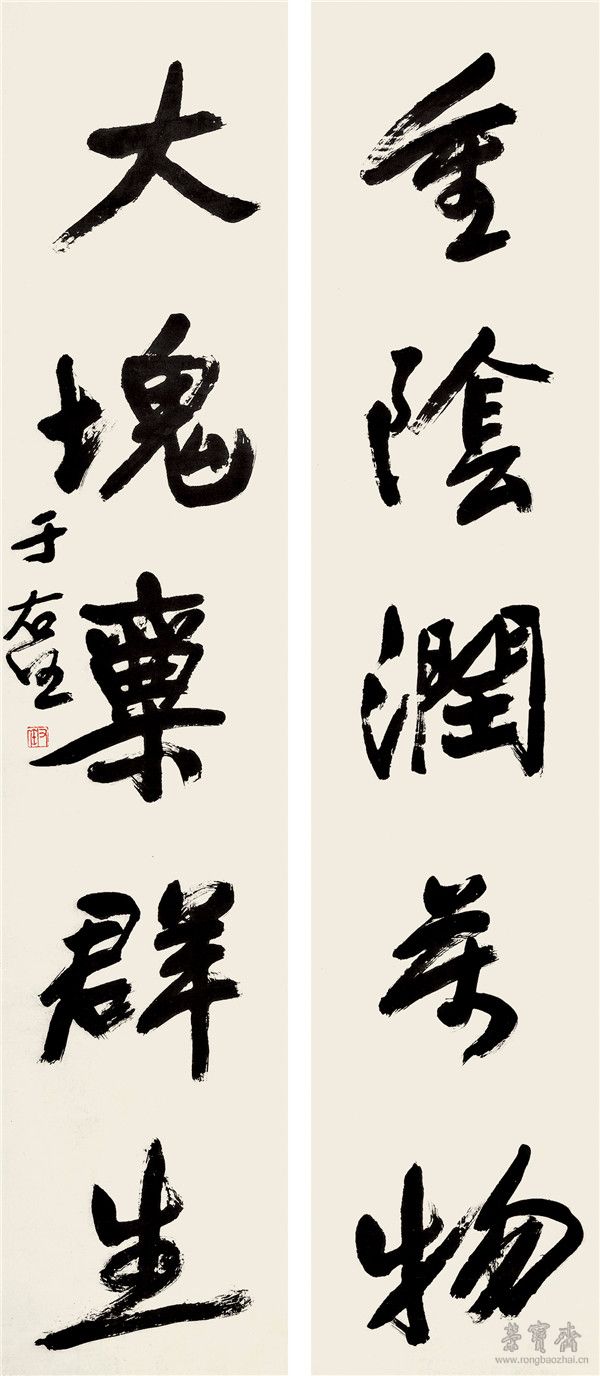 重陰潤萬物
大塊稟群生
于右任
右任
榮寶齋
www.rongbaozhai.cn